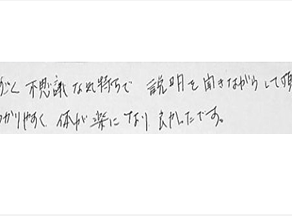 不思議な気持ちで 説明を聞きながらして頂
がりやすく 体が楽になり 良かったです。